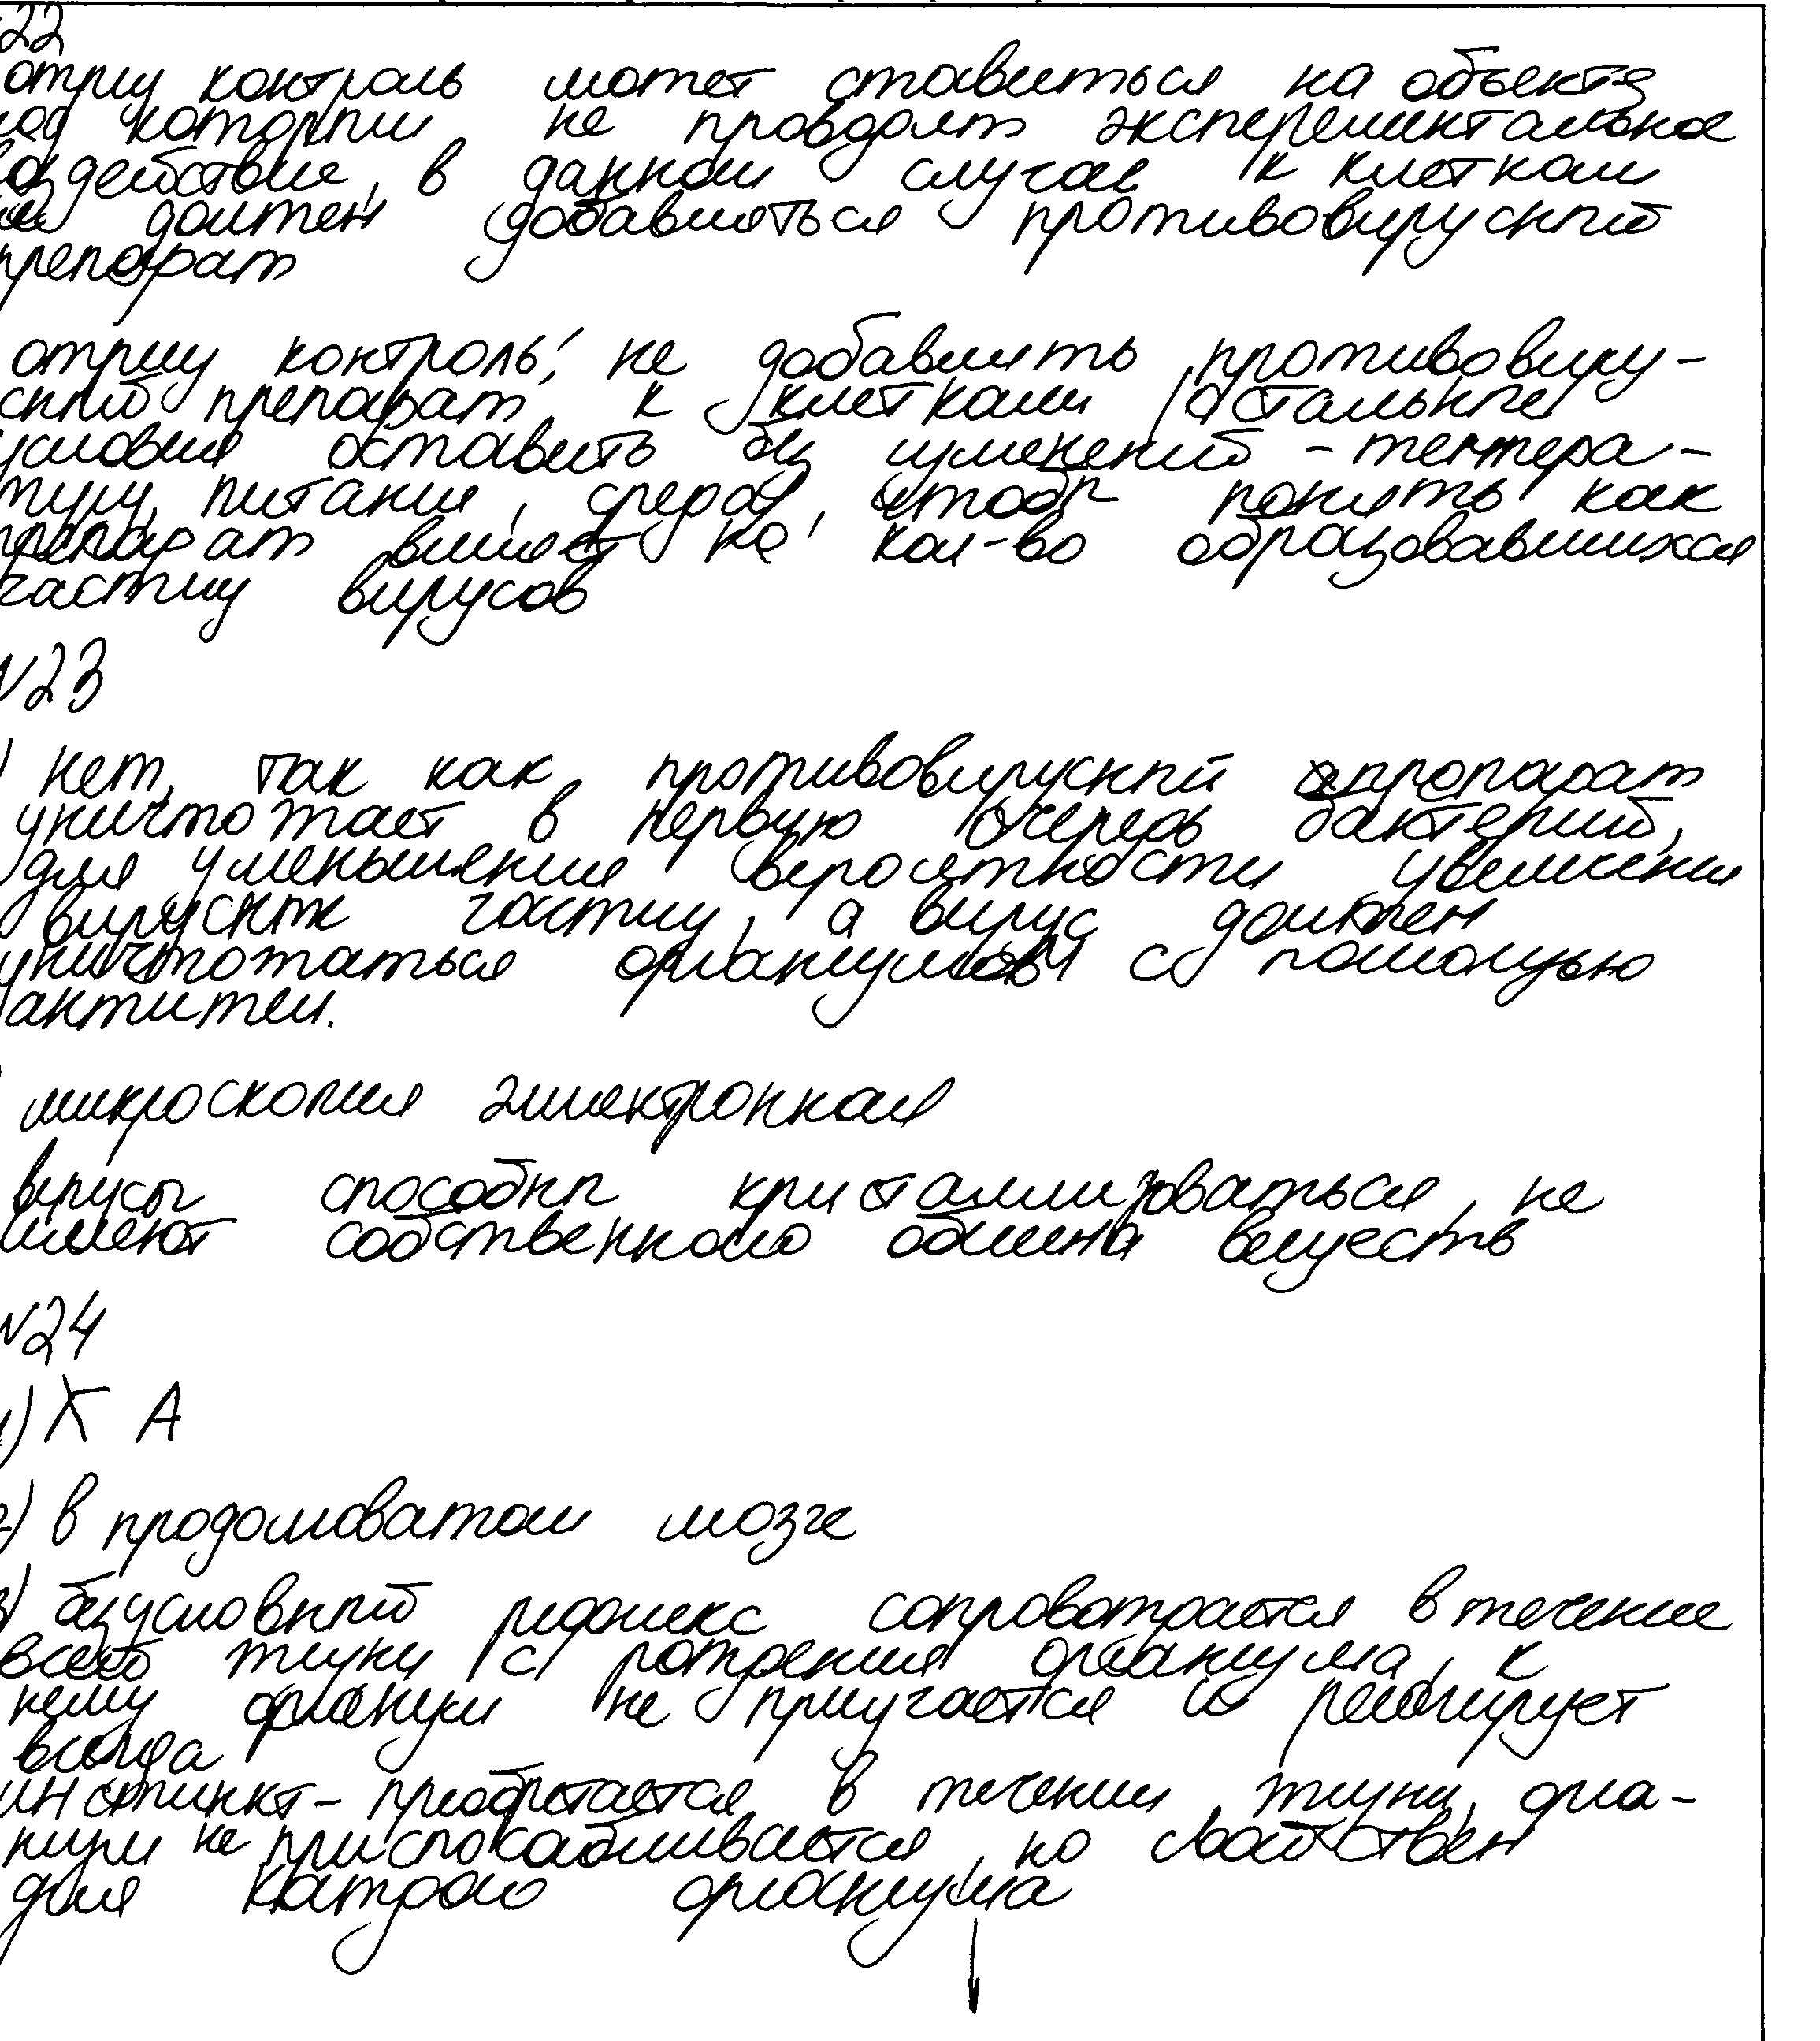 22
отриц контроль может ставиться на объекте
над которым не проводят эксперементальное
воздействие, в данном случае к клеткам
не должен добавляться противовирусный
препарат
отриц контроль: не добавлять противовиру-
сный препарат к клеткам, остальные
условия оставить без изменений - темпера-
туру, питание, среда, чтобы понять как
препарат влияет на кол-во образовавшихся
частиц вирусов
N23
) нет, так как противовирусный препарат
уничтожает в первую очередь бактерий,
для уменьшения вероятности увеличения
вирусных частиц, а вирус должен
уничтожаться организмом с помощью
антител.
микроскопия электронная
вирусы способны кристаллизоваться, не
имеют собственного обмена веществ
N24
1) Х А
2) в продолговатом мозге
3) безусловный рефлекс сопровождается в течение
всей жизни с рождения организма, к
нему организм не приучается и реагирует
всегда
инстинкт - приобретается в течении жизни, орга-
низм не приспосабливается, но свойствен
для каждого организма